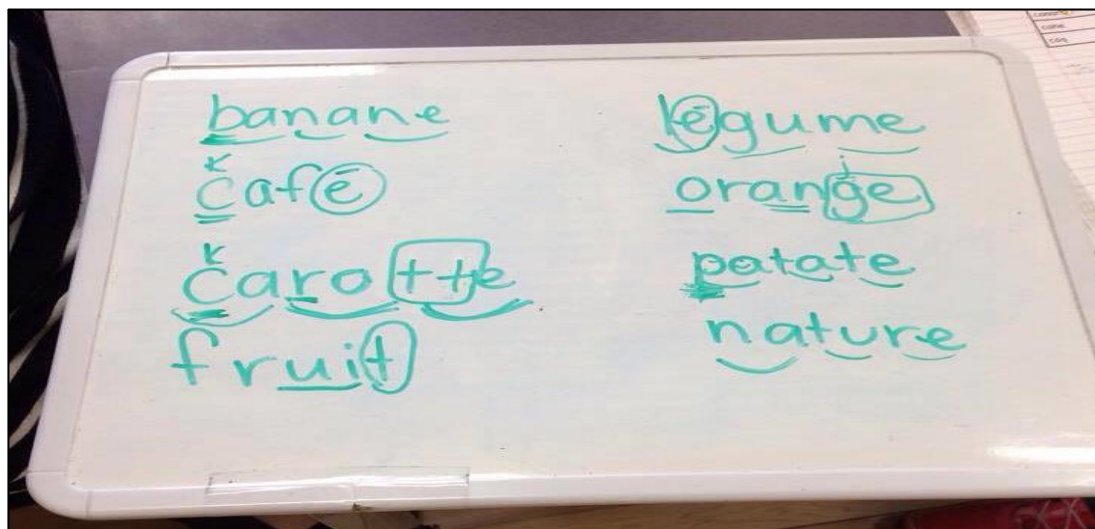 banane
k
café
k
carotte
fruit
légume
j
orange
patate
nature
coq